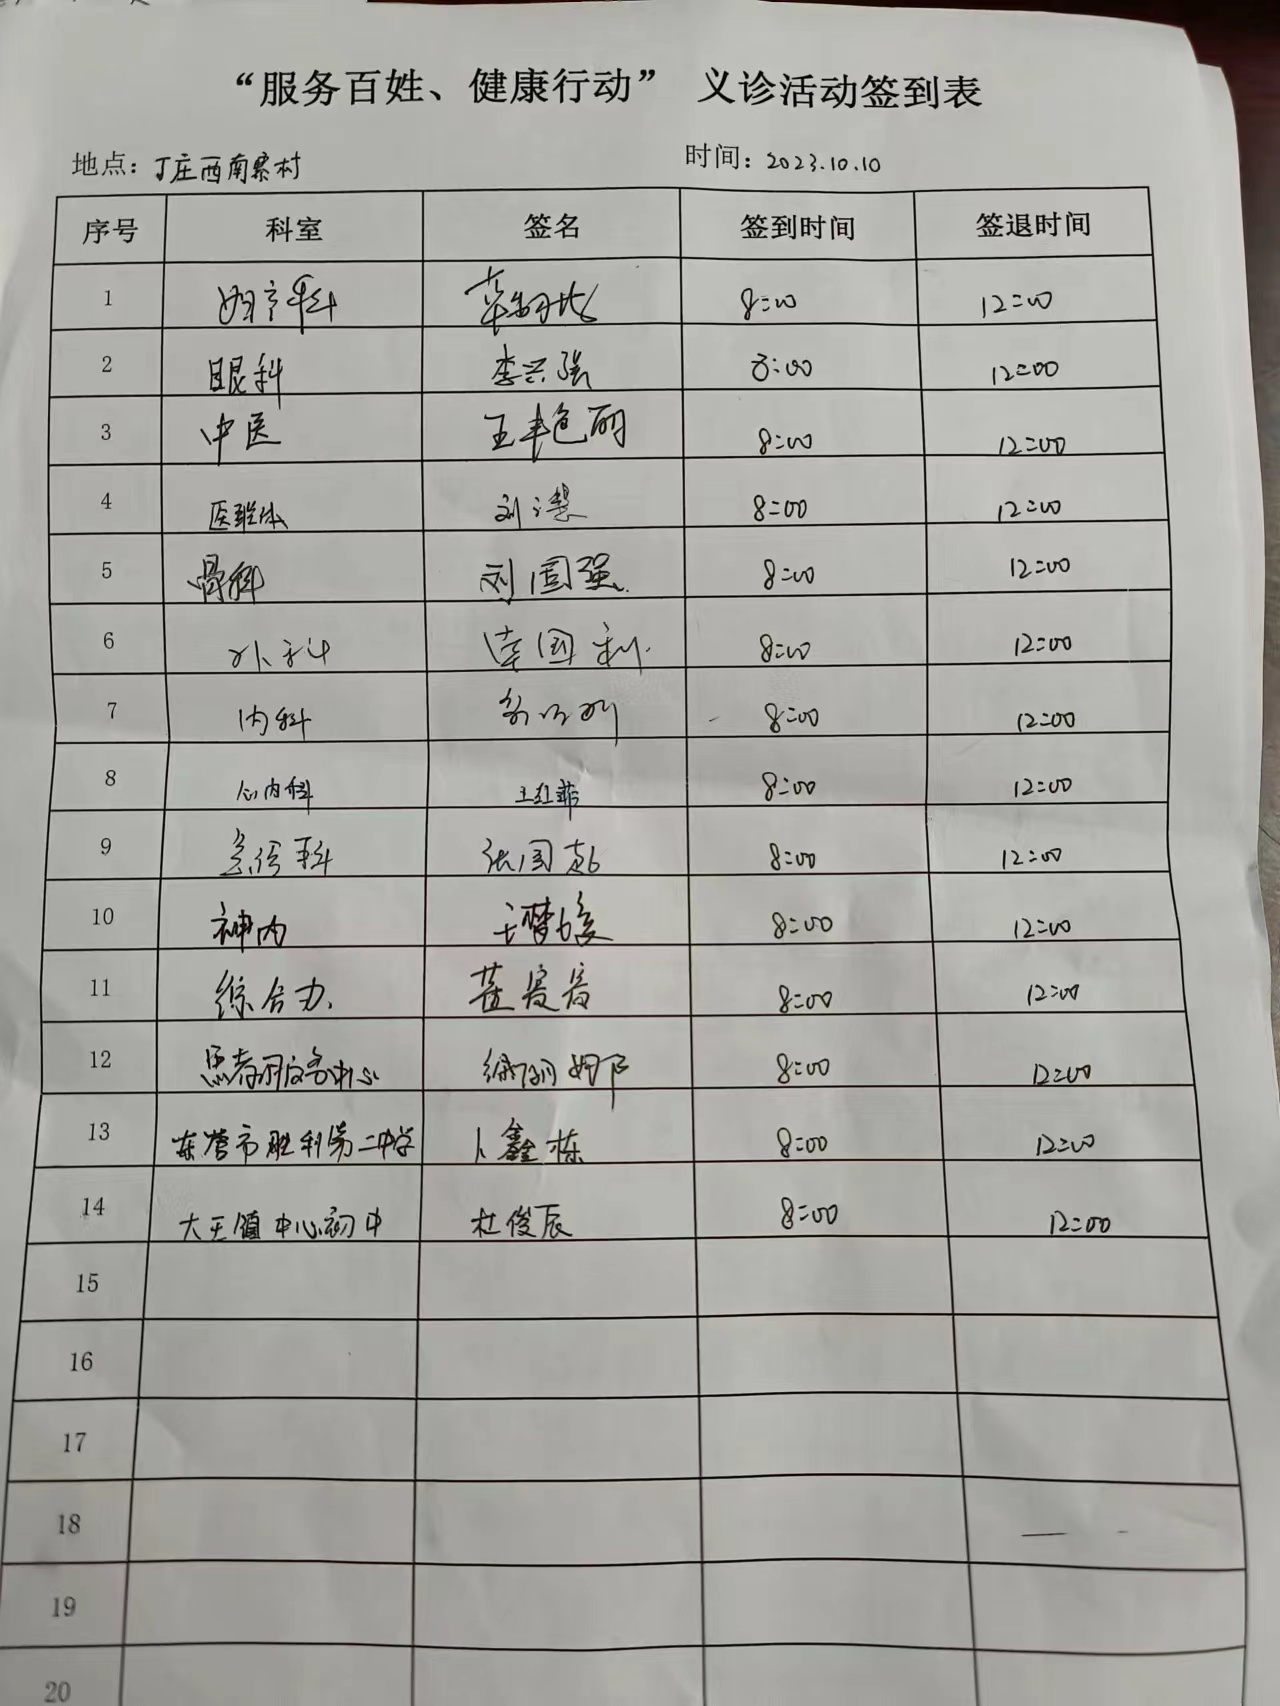 “服务百姓、健康行动” 义诊活动签到表
地点：丁庄西南寨村 时间：2023.10.10
序号 科室 签名 签到时间 签退时间
1 妇产科 8:00 12:00
2 眼科 李兴强 8:00 12:00
3 中医 王艳丽 8:00 12:00
4 医联体 刘慧 8:00 12:00
5 骨科 刘国强 8:00 12:00
6 外科 国利 8:00 12:00
7 内科 8:00 12:00
8 心内科 王红 8:00 12:00
9 急诊科 张国 8:00 12:00
10 神内 王梦 8:00 12:00
11 综合办 董 8:00 12:00
12 患者服务中心 娜 8:00 12:00
13 东营市胜利第二中学 卜鑫栋 8:00 12:00
14 大王镇中心初中 杜俊辰 8:00 12:00
15
16
17
18
19
20